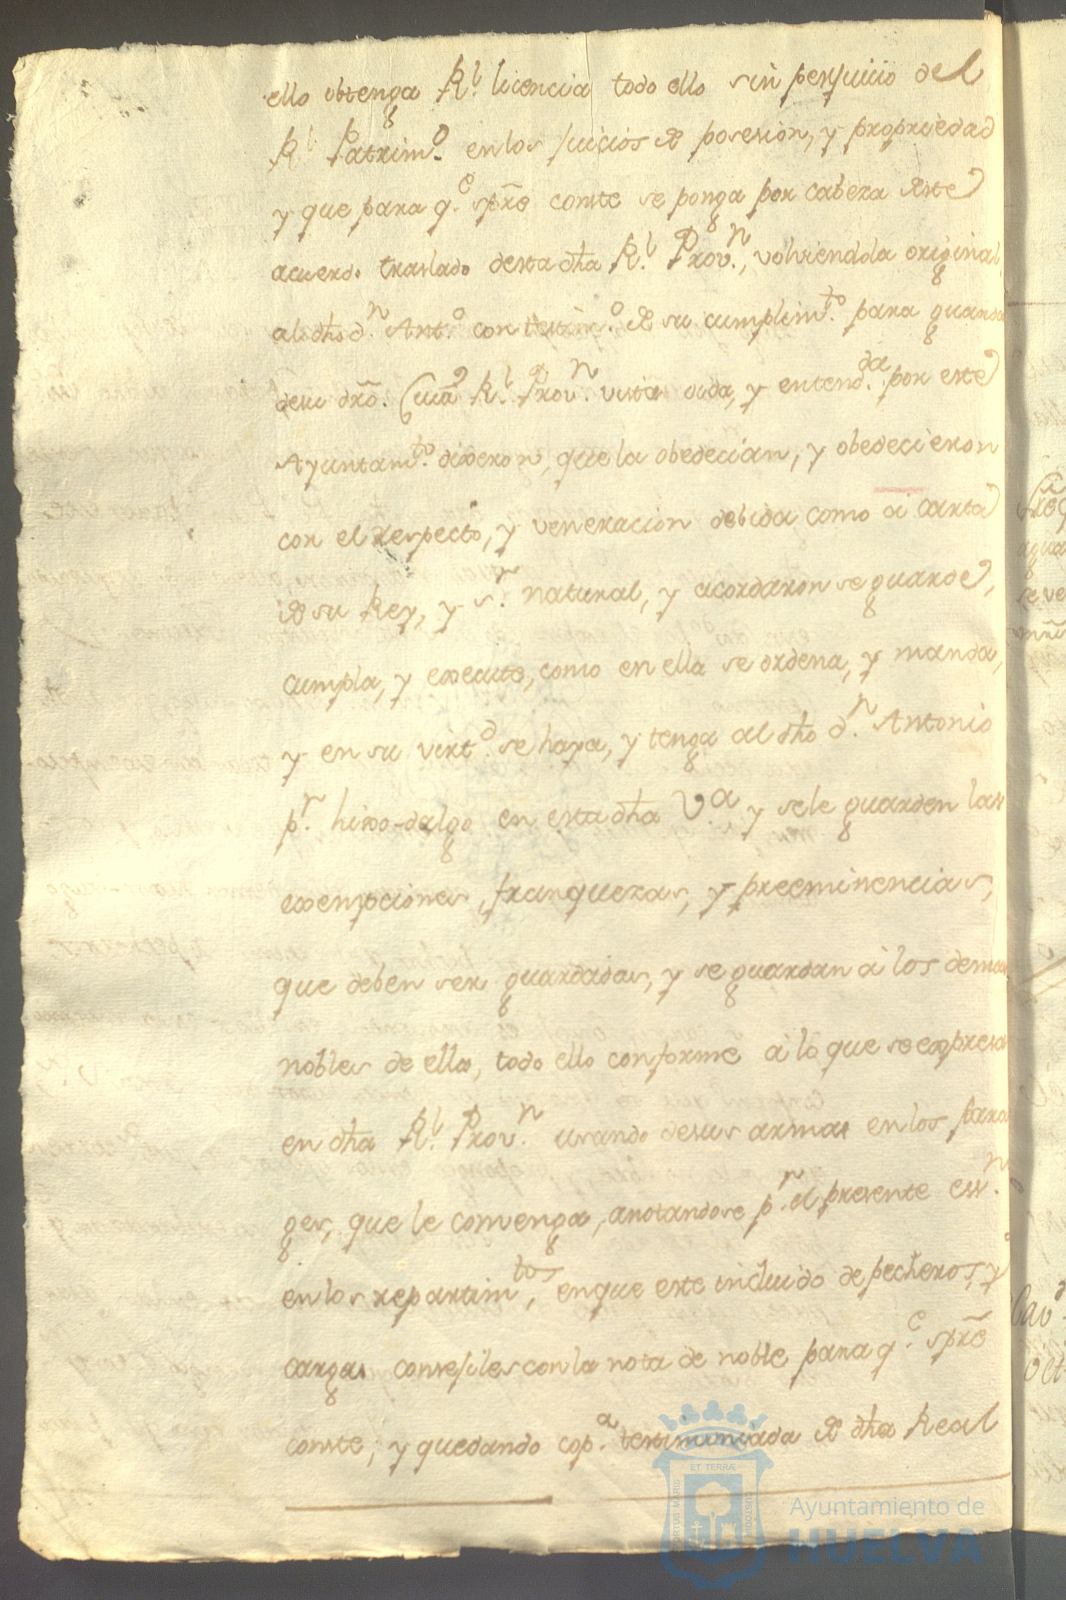 ello obtenga Rl. licencia todo ello sin perjuicio del
Rl. Patrimo. en los juicios de posesion, y propriedad
y que para q.e spre conste se ponga por cabeza deste
acuerdo traslado desta dha Rl. Provn., volviendola original
al dho dn. Anto. con testimo. de su cumplimto. para guarda
desu dro. Cuia Rl. Provn. vista oida, y entendda. por este
Ayuntamto. dixeron, que la obedecian, y obedecieron
con el respecto, y veneracion debida como á carta
de su Rey, y sr. natural, y acordaron se guarde,
cumpla, y execute, como en ella se ordena, y manda,
y en su virtd. se haya, y tenga al dho dn. Antonio
pr. hixo-dalgo en esta dha Va. y sele guarden las
exempciones, franquezas, y preeminencias,
que deben ser guardadas, y se guardan á los demas
nobles de ella, todo ello conforme á lo que se expresa
en dha Rl. Provn. usando desus armas en los para
ges, que le convenga, anotandose pr. el presente essn.
en los repartimtos, enque este incluido de pecheros, y
cargas consejiles con la nota de noble para q.e spre
conste, y quedando copa. testimoniada de dha Real
PORTUS MARIS ET TERRÆ CUSTODIA
Ayuntamiento de
HUELVA